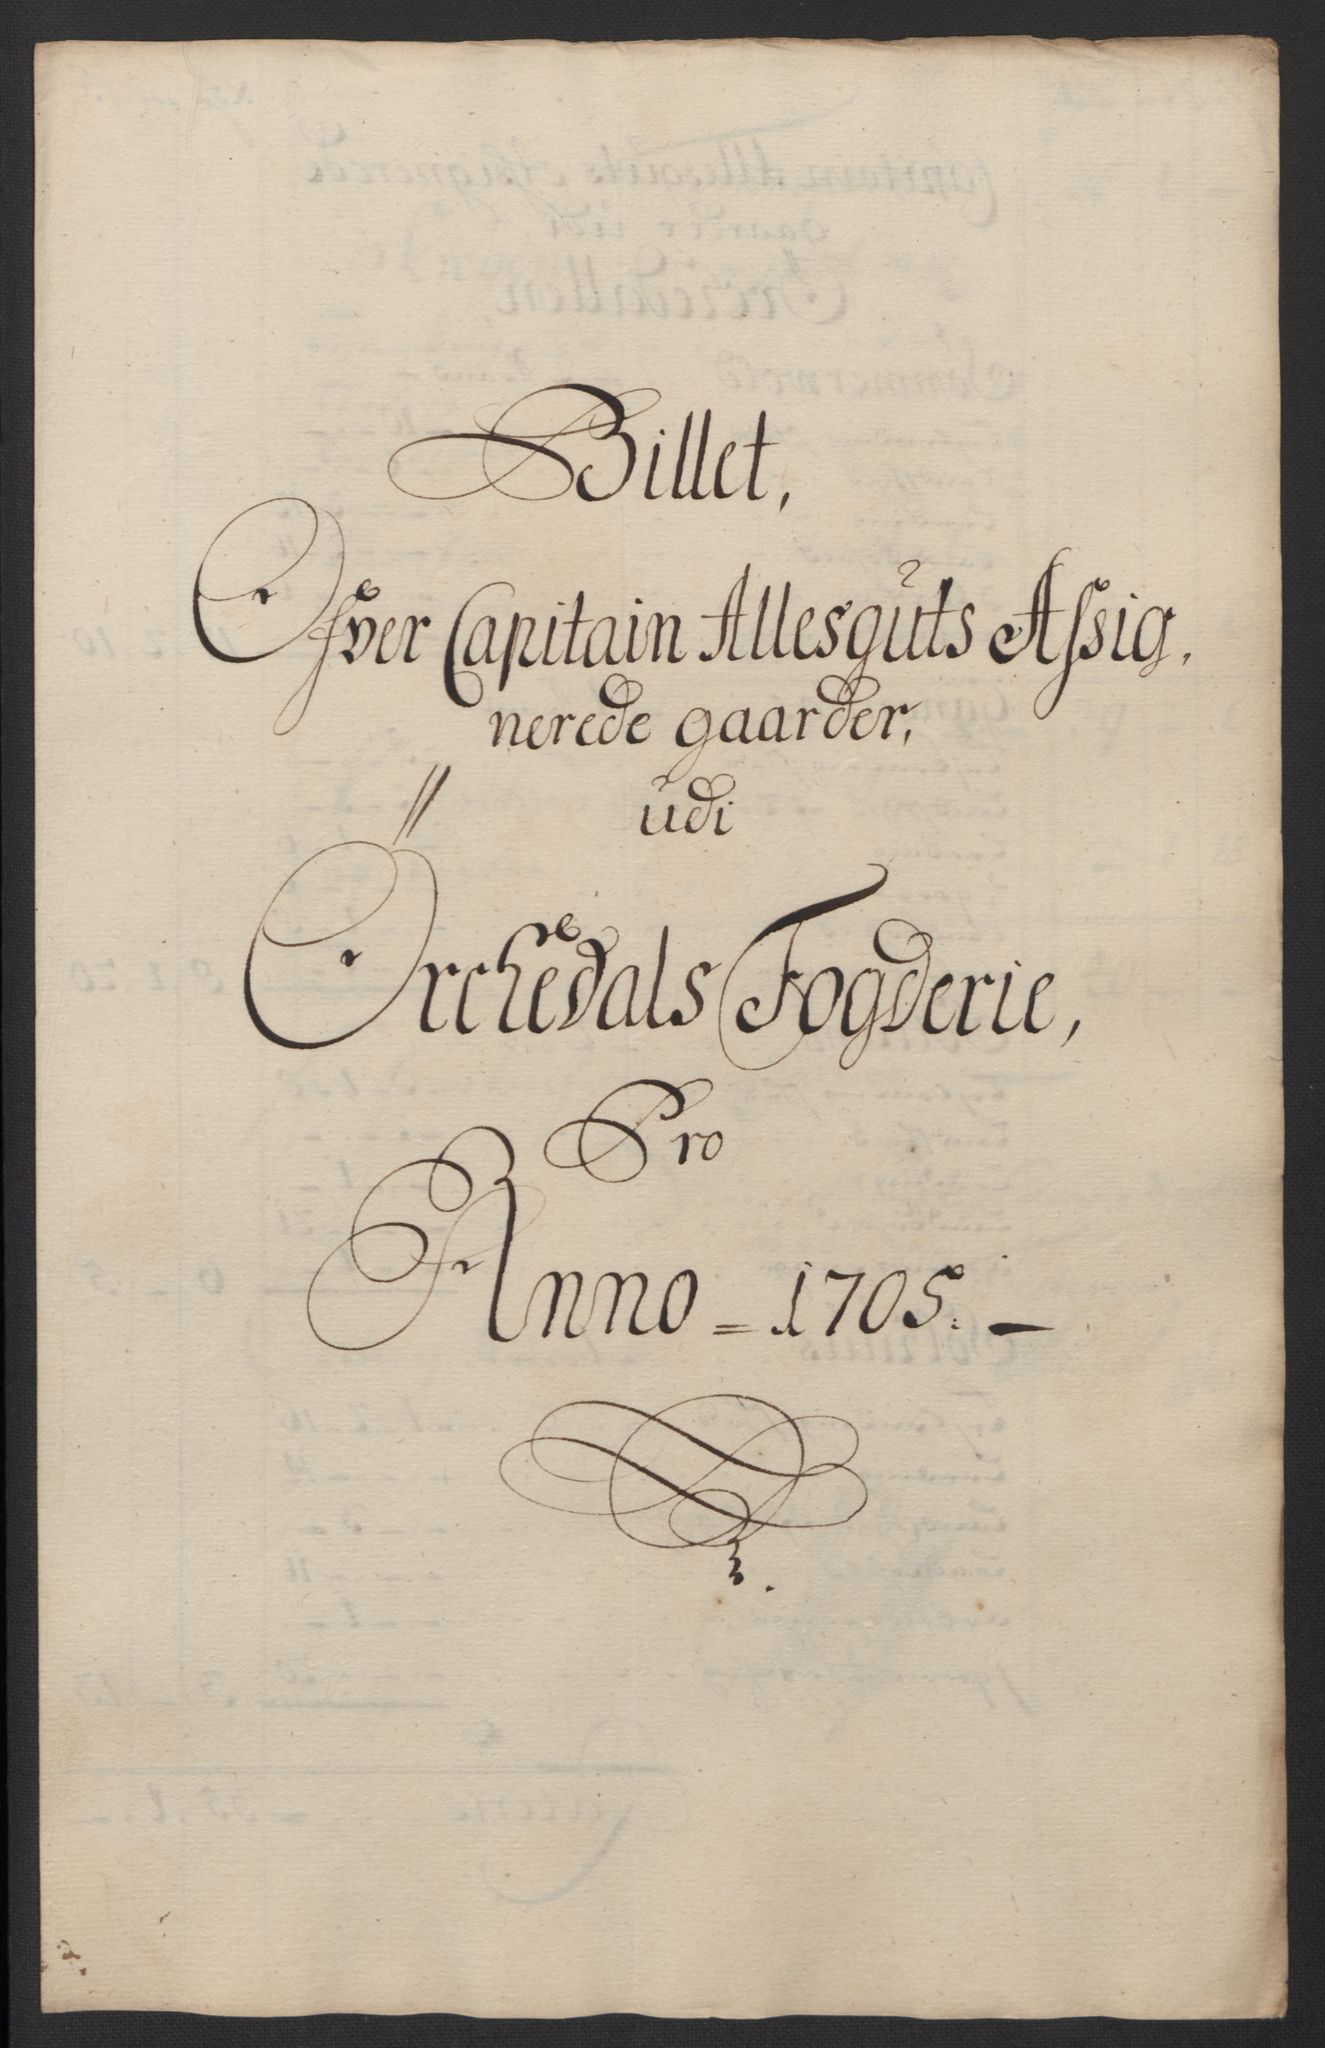 Billet,
Ofver Capitain Allesguts Assig,
nerede gaarder,
udi
Örchedals Fogderie,
Pro
Anno = 1705. —